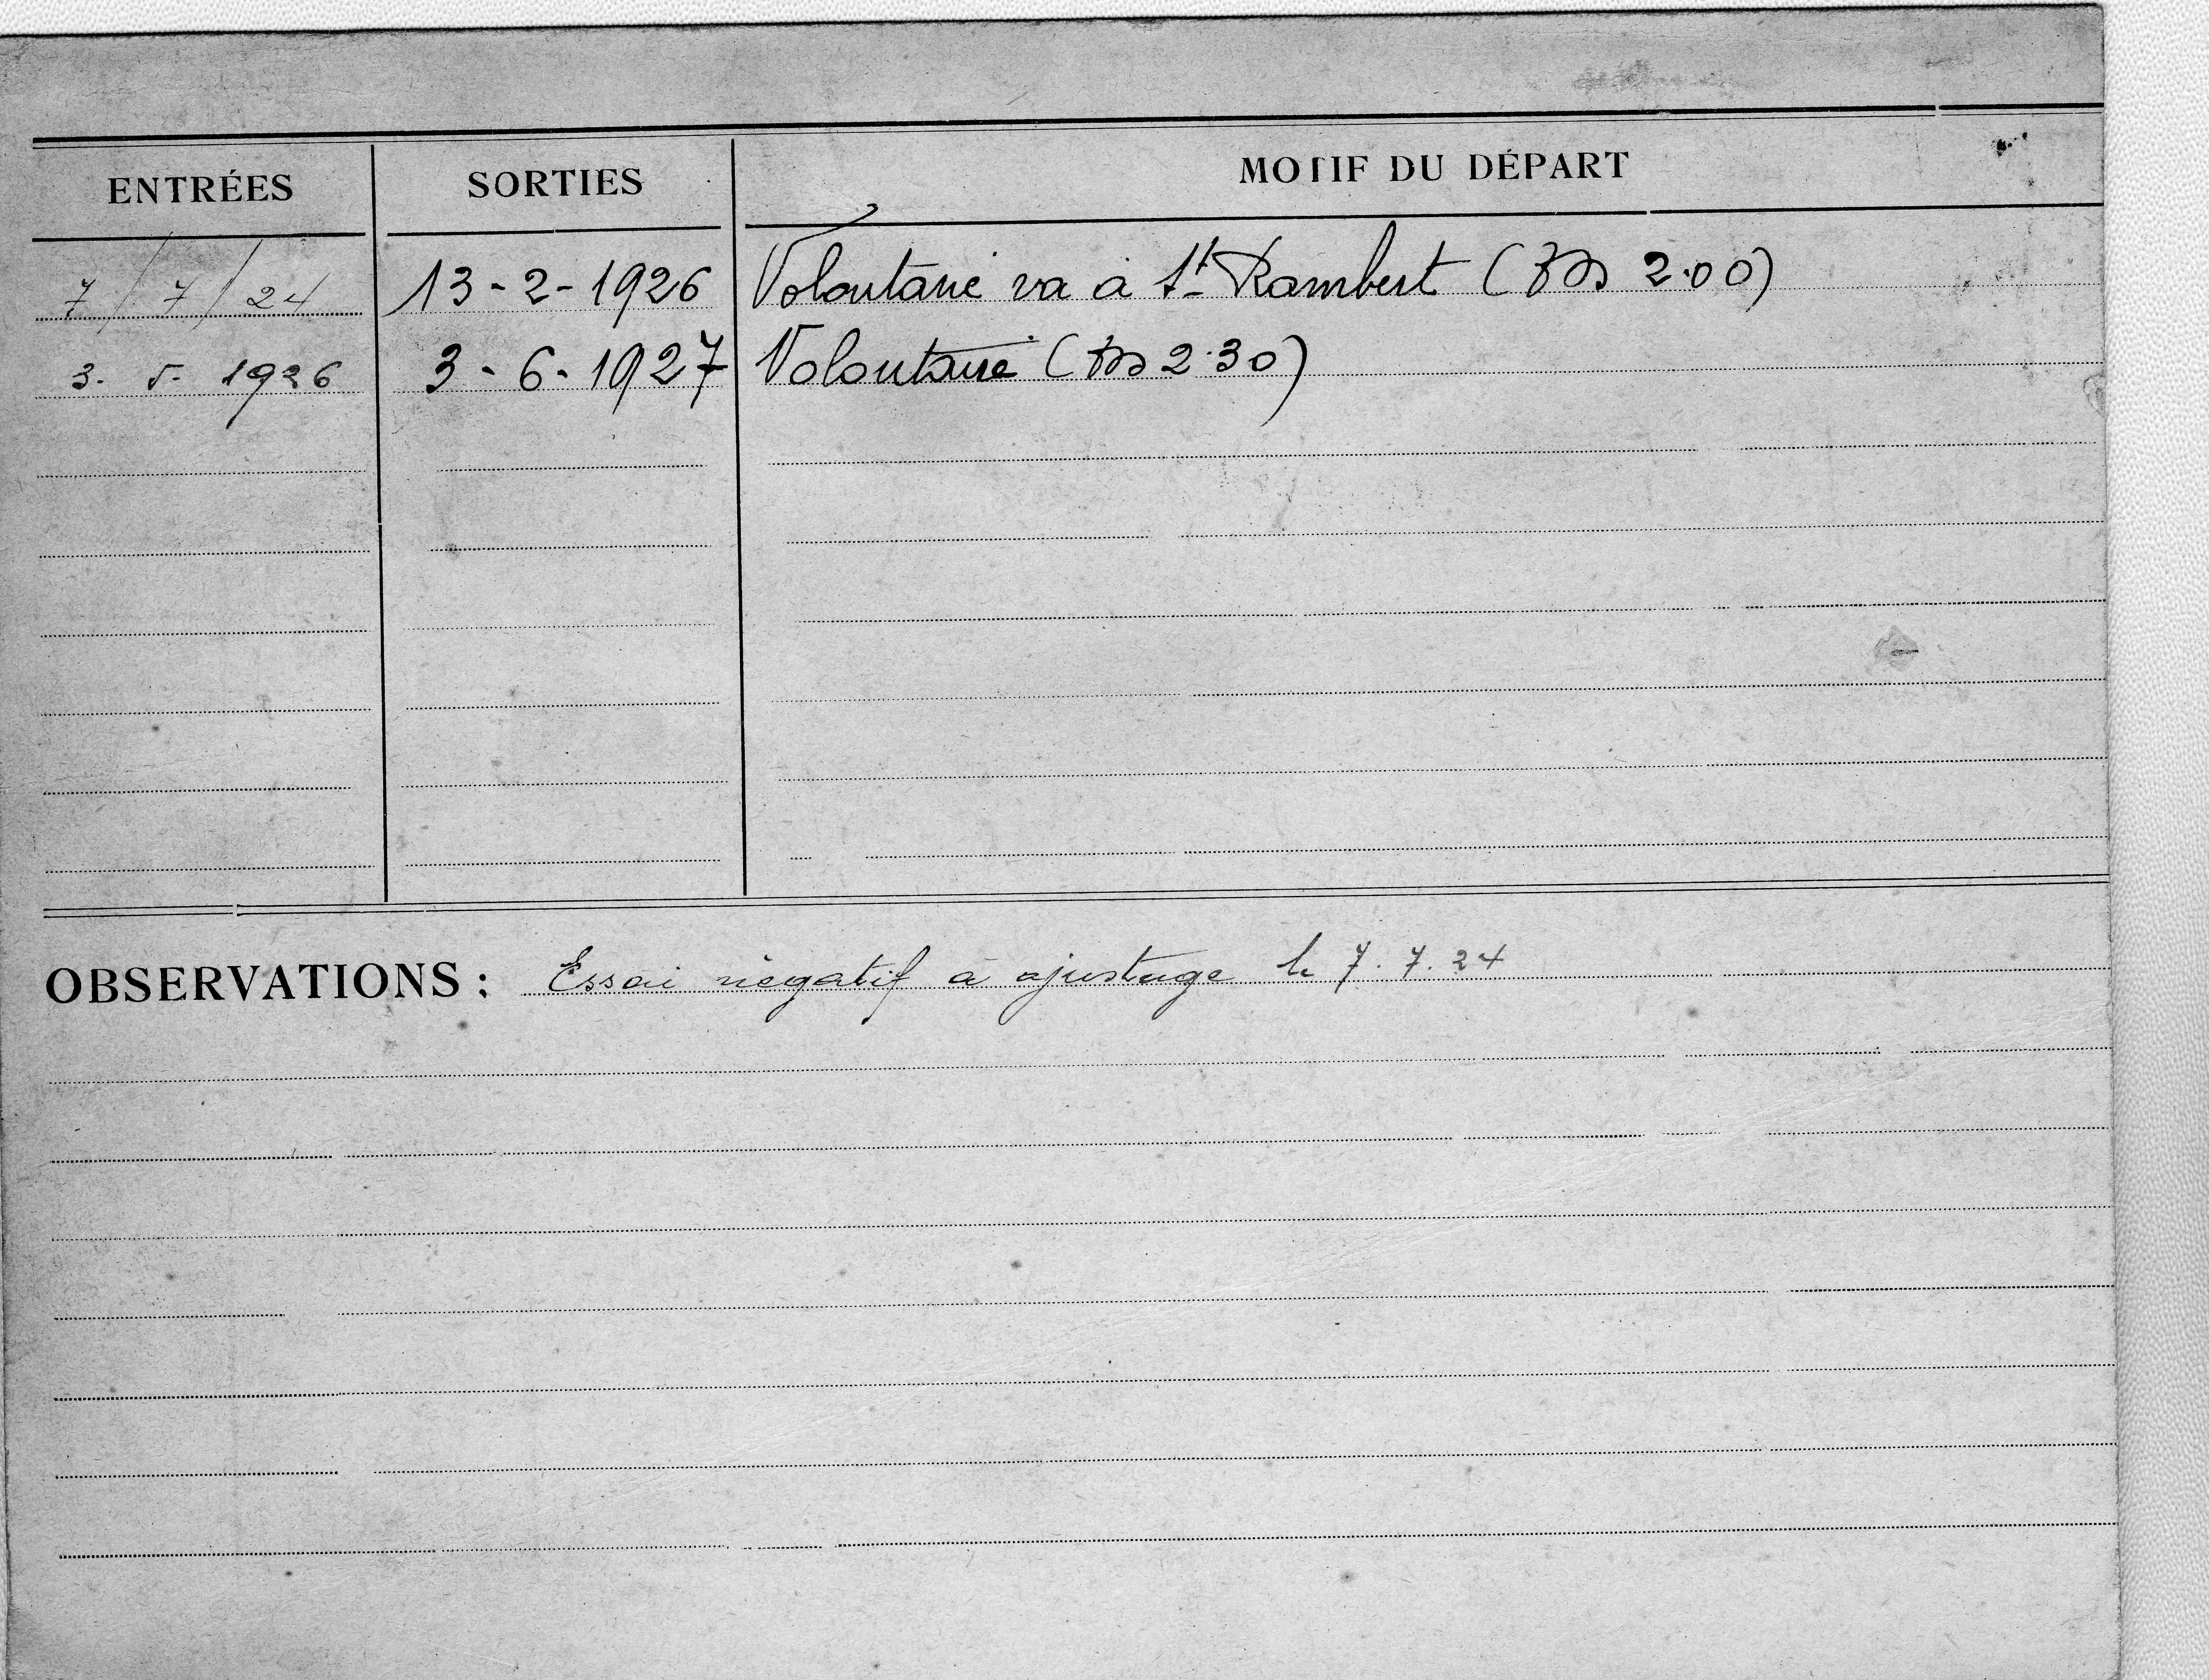 ENTRÉES SORTIES MOTIF DU DÉPART
7/7/24 13-2-1926 Volontaire va à St Rambert ( 2.00)
3. 5. 1926 3-6-1927 Volontaire ( 2.30)
OBSERVATIONS : Essai négatif à ajustage le 7.7.24